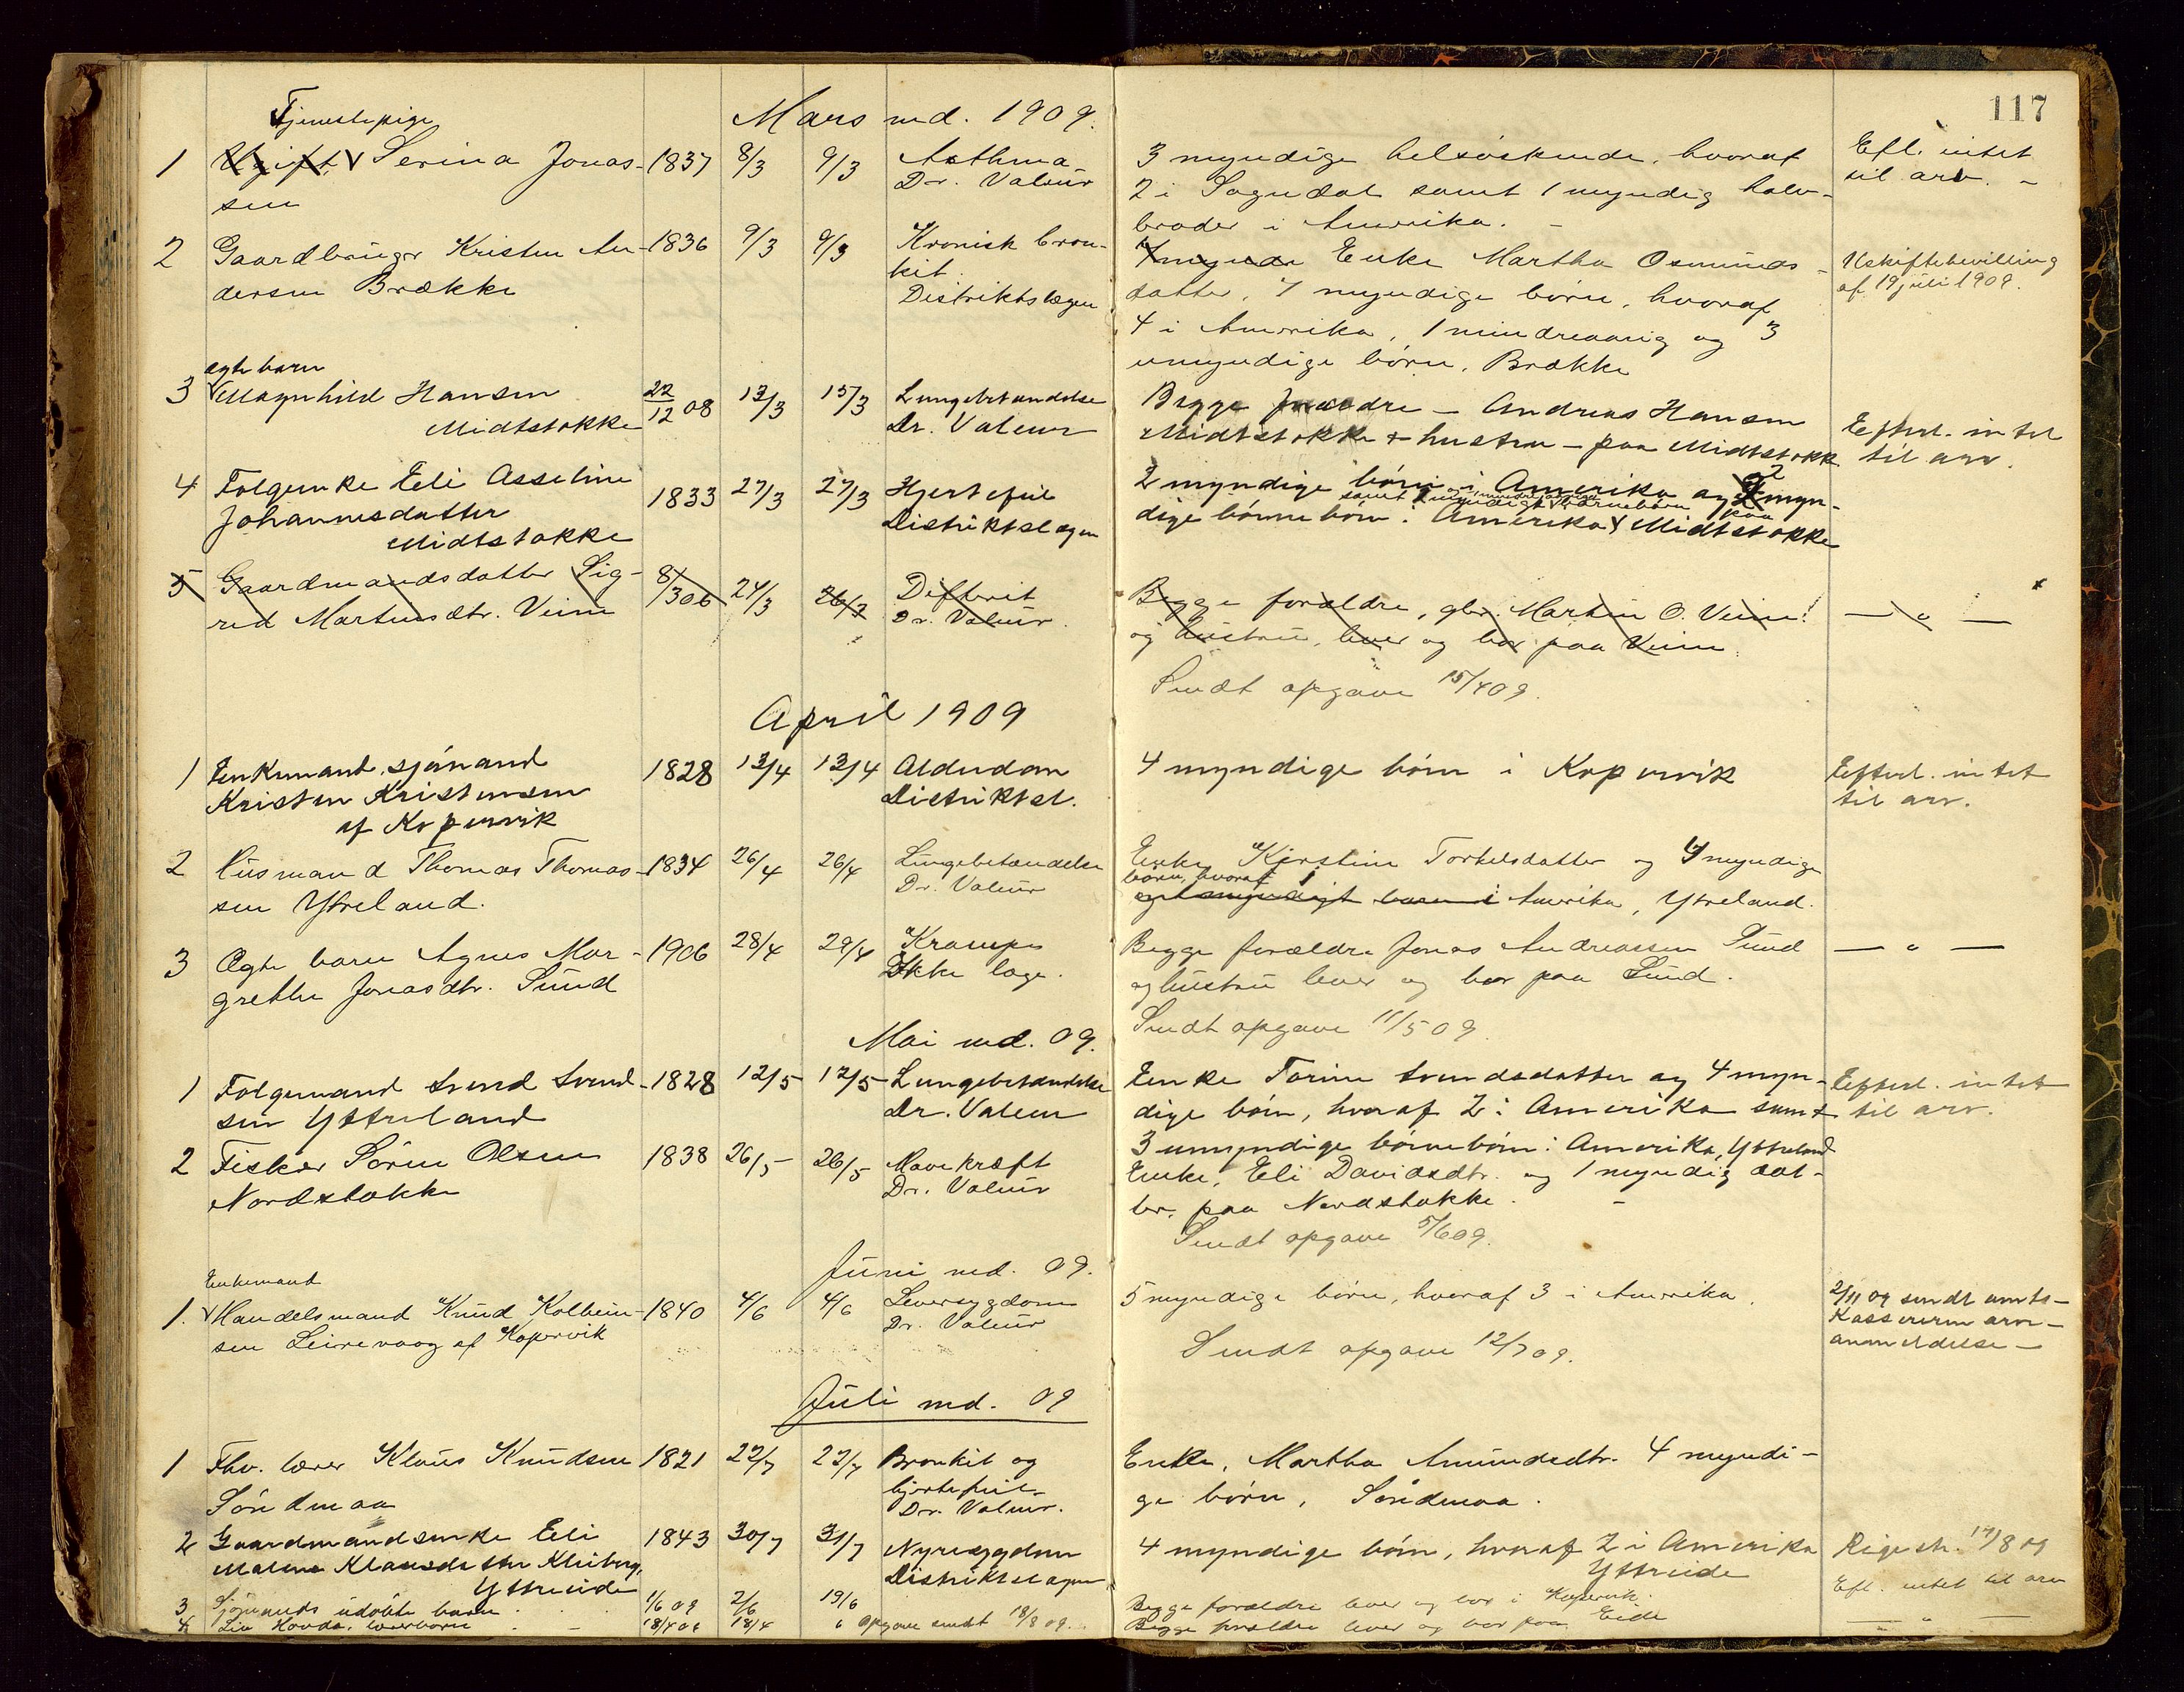 117
Mars md. 1909.
Tjenestepige
1 Ugift Serina Jonas- 1837 8/3 9/3 Asthma 3 myndige helsøskende, hvoraf Efl. intet
sen Dr. Valeur 2 i Sogndal samt 1 myndig halv- til arv. -
broder i Amerika. -
2 Gaardbruger Kristen An- 1836 9/3 9/3 Kronisk bron- 7 mynde Enke Martha Osmunds- Uskiftebevilling
dersen Brække kit. datter, 7 myndige børn, hvoraf af 19 juli 1909.
Distriktslægen 4 i Amerika, 1 mindreaarig og 3
umyndige børn, Brække
ægte barn
3 Magnhild Hansen 22/12 08 13/3 15/3 Lungebetændelse Begge forældre - Andreas Hansen Efterl. intet
Midtstokke Dr. Valeur Midtstokke & hustru - paa Midtstokke til arv.
4 Folgeenke Eli Asseline 1833 27/3 27/3 Hjertefeil 2 myndige børn i Amerika og 2 myn-
Johannesdatter Distriktslægen dige børnebørn i Amerika paa Midtstokke
Midtstokke
5 Gaardmandsdatter Sig- 8/3 06 24/3 26/3 Difterit Begge forældre, gbr. Martin O. Veine — " —
rid Martinsdtr. Veine Dr. Valeur. og hustru, lever og bor paa Veine.
Sendt opgave 15/4 09.
April 1909
1 Enkemand, sjømand 1828 13/4 13/4 Alderdom 4 myndige børn i Kopervik Efterl. intet
Kristen Kristensen Distriktsl. til arv.
af Kopervik
2 Husmand Thomas Thomas- 1834 26/4 26/4 Lungebetændelse Enke Kjerstine Torkelsdatter og 4 myndige
sen Ytreland. Dr. Valeur børn, hvoraf 1
og 1 myndigt barn i Amerika, Ytreland.
3 Ægte barn Agnes Mar- 1906 28/4 29/4 Krampe Begge forældre Jonas Andreassen Sund — " —
grethe Jonasdtr. Sund Ikke læge. og hustru lever og bor paa Sund.
Sendt opgave 11/5 09.
Mai md. 09.
1 Folgemand Svend Svend- 1828 12/5 12/5 Lungebetændelse Enke Torine Svendsdatter og 4 myn- Efterl. intet
sen Yttreland Dr. Valeur dige børn, hvoraf 2 i Amerika samt til arv.
3 umyndige børnebørn i Amerika, Yttreland
2 Fisker Sören Olsen 1838 26/5 26/5 Mavekræft Enke, Eli Davidsdtr. og 1 myndig dat-
Nordstokke Dr. Valeur ter. paa Nordstokke. -
Sendt opgave 5/6 09.
Juni md. 09.
Enkemand
1. Handelsmand Knud Kolbein- 1840 4/6 4/6 Leversygdom 5 myndige børn, hvoraf 3 i Amerika. 2/11 09 sendt amts-
sen Leirevaag af Kopervik Dr. Valeur kassereren arve-
Sendt opgave 12/7 09. anmeldelse -
Juli md. 09
1 Fhv. lærer Klaus Knudsen 1821 22/7 22/7 Bronkit og Enke, Martha Amundsdtr. 4 myndi-
Söndmaa hjertefeil ge børn, Söndmaa.
Dr. Valeur.
2 Gaardmandsenke Eli 1843 30/7 31/7 Nyresygdom 4 myndige børn, hvoraf 2 i Amerika 17/8 09
Malene Klausdatter Distriktslægen Yttreide
Yttreide Efl. intet til arv
3 Sjømands udøbte barn 1/6 09 2/6 19/6 Begge forældre lever og bor i Kopervik.
4 18/4 18/4 Opgave sendt 18/8 09. Begge forældre lever og bor paa Eide — " —